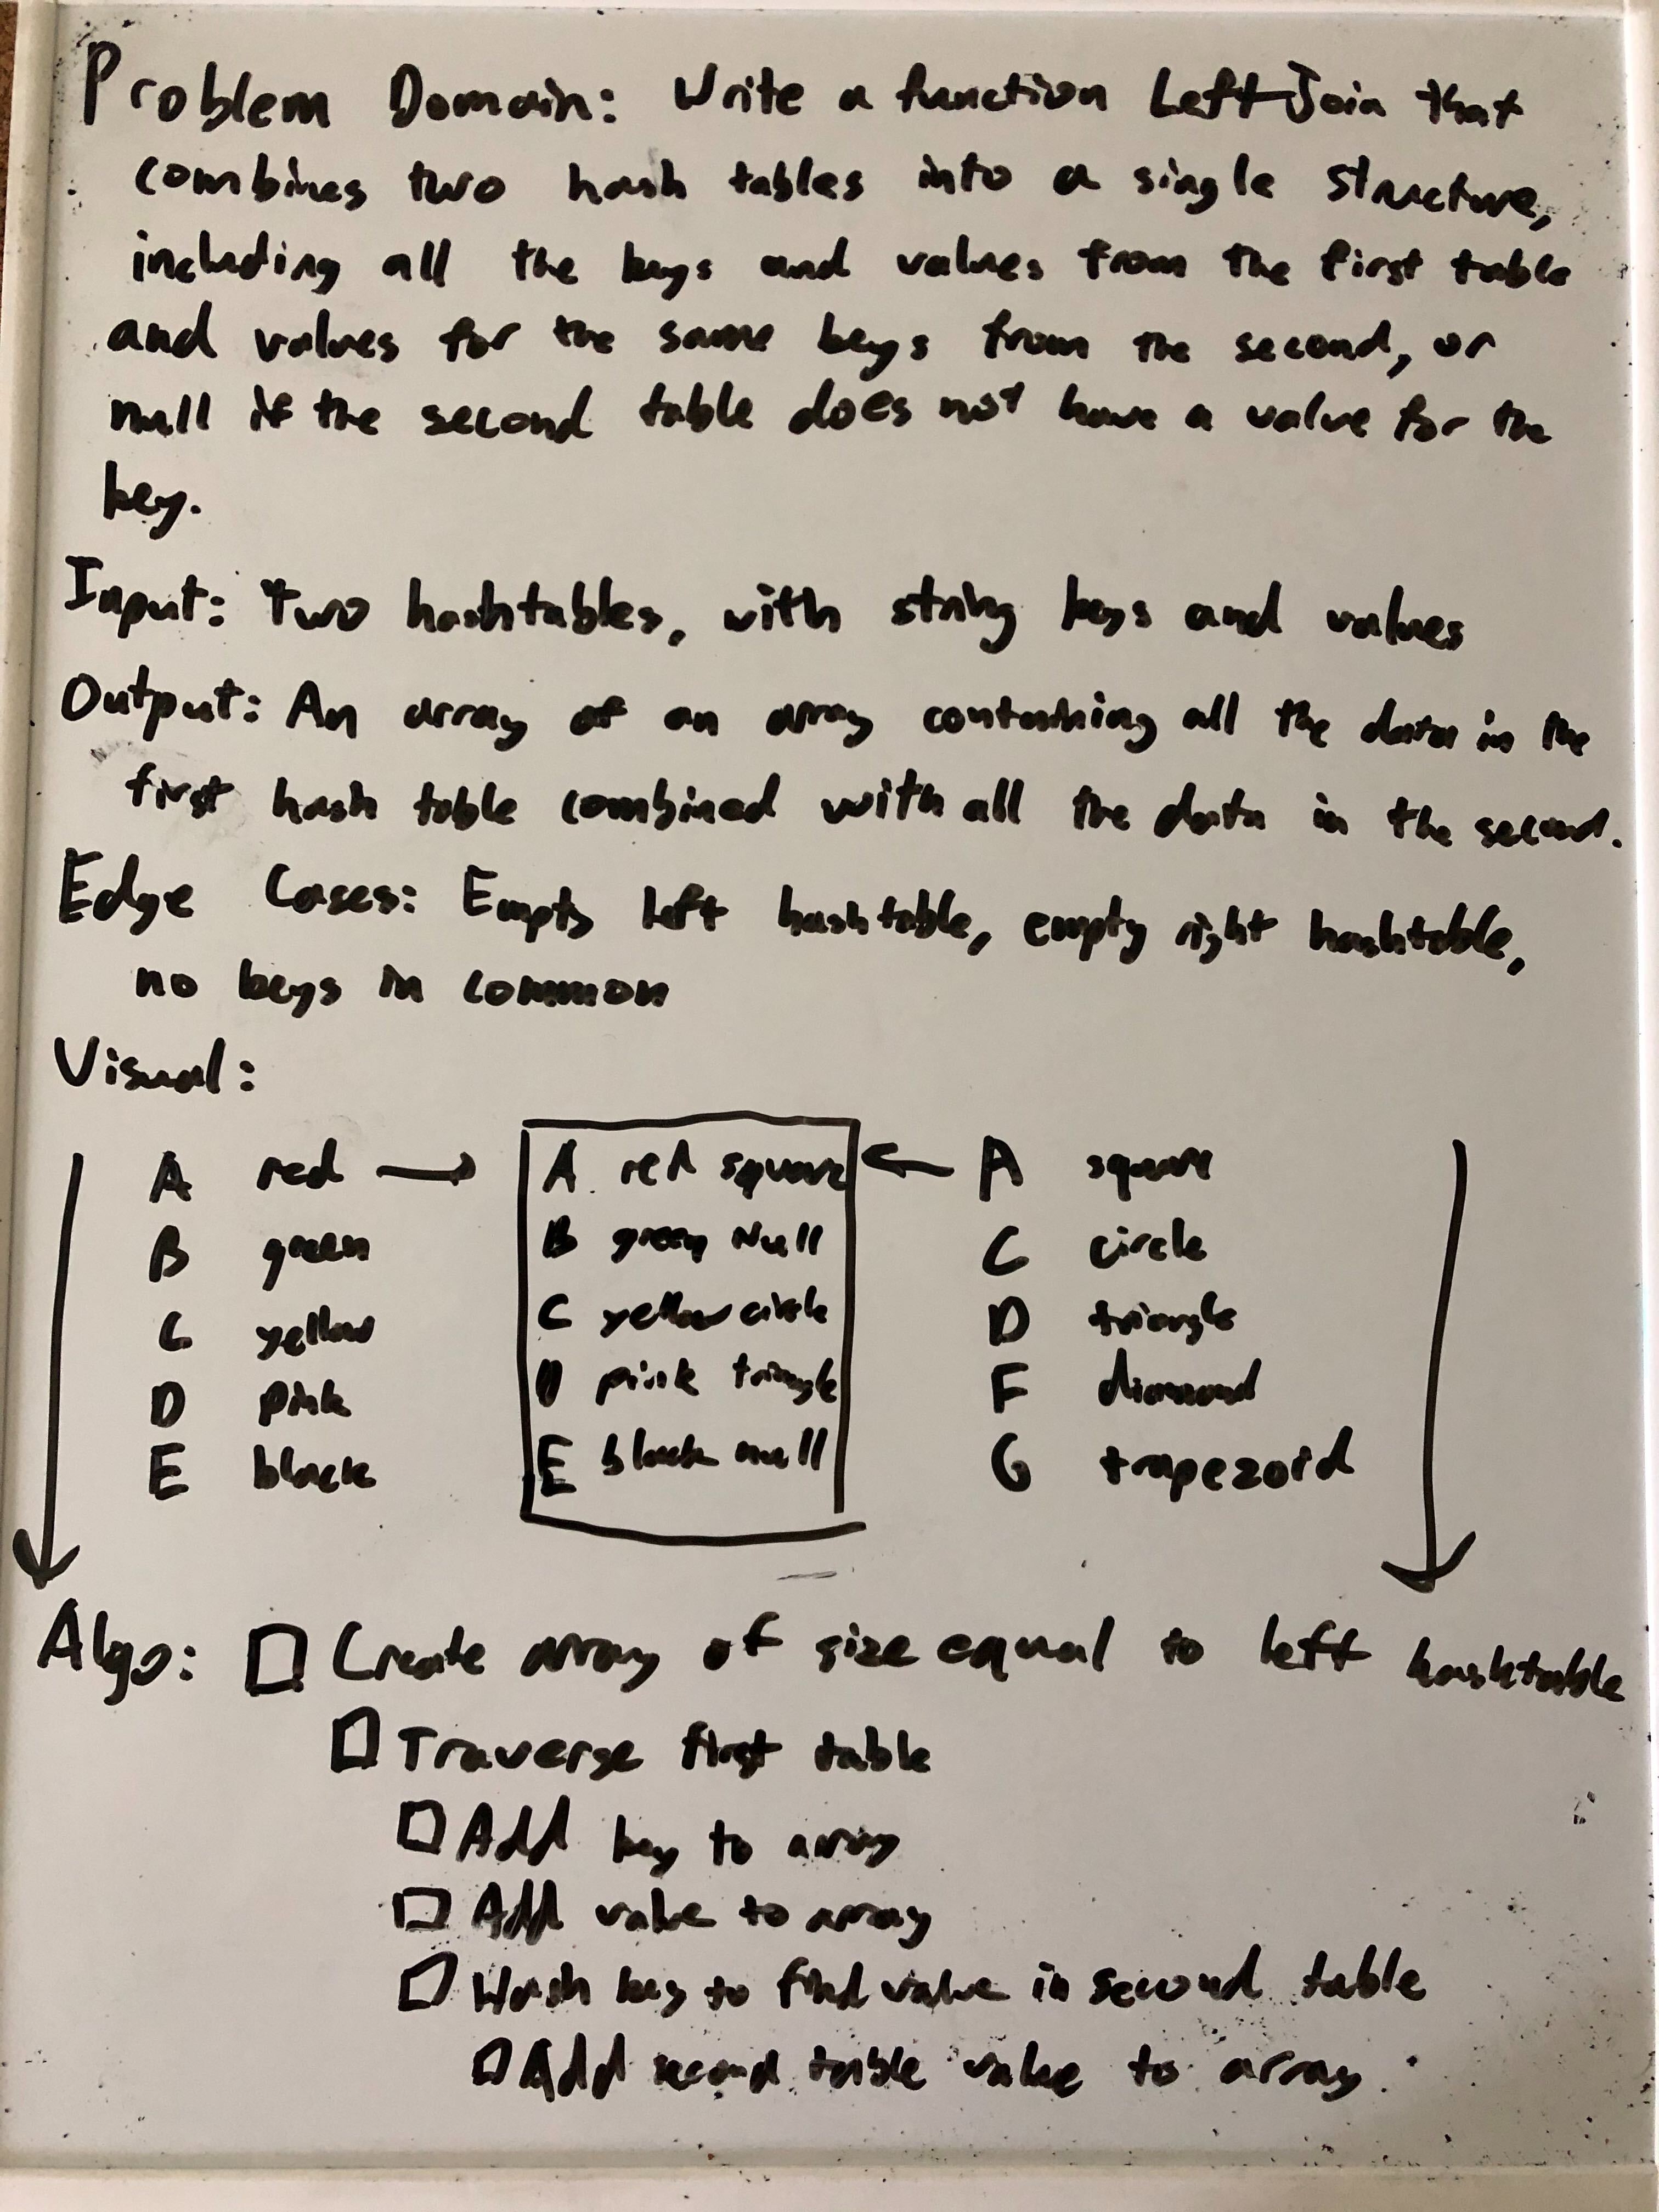 Problem Domain: Write a function LeftJoin that
combines two hash tables into a single structure,
including all the keys and values from the first table
and values for the same keys from the second, or
null if the second table does not have a value for the
key.
Input: Two hashtables, with string keys and values
Output: An array of an array containing all the data in the
first hash table combined with all the data in the second.
Edge Cases: Empty left hashtable, empty right hashtable,
no keys in common
Visual:
A red → A red square ← A square
B green B green Null C circle
C yellow C yellow circle D triangle
D pink D pink triangle F diamond
E black E black null G trapezoid
Algo: Create array of size equal to left hashtable
Traverse first table
Add key to array
Add value to array
Hash key to find value in second table
Add second table value to array.